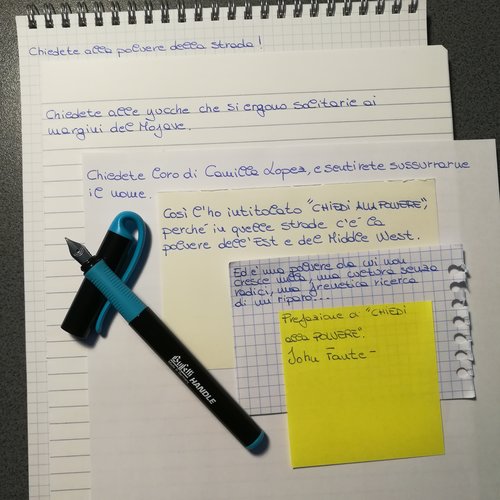 Chiedete alla polvere della strada!
Chiedete alle yucche che si ergono solitarie ai
margini del Mojave.
Chiedete loro di Camilla Lopez, e sentirete sussurrarne
il nome.
Così l'ho intitolato "CHIEDI ALLA POLVERE",
perché in quelle strade c'è la
polvere dell'Est e del Middle West.
Ed è una polvere da cui non
cresce nulla, una cultura senza
radici, una frenetica ricerca
di un riparo...
Prefazione a "CHIEDI
alla POLVERE".
John Fante-
Buffetti
HANDLE